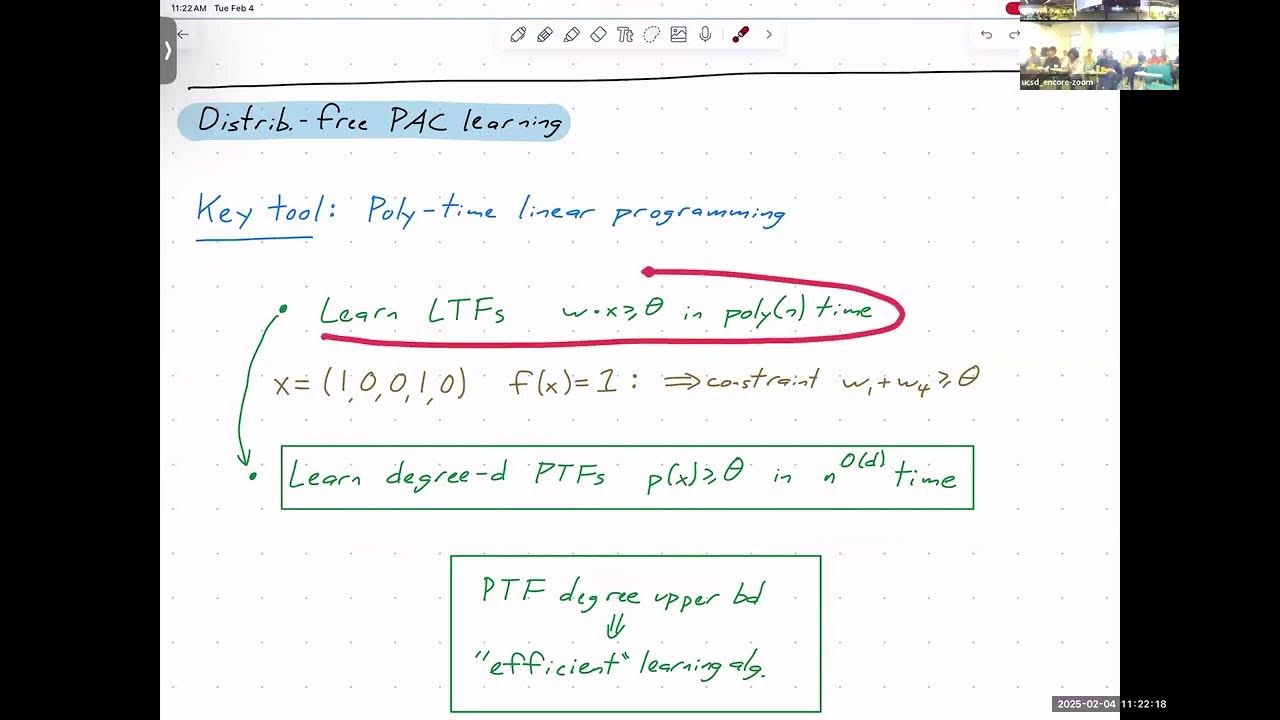 11:22 AM Tue Feb 4
ucsd_encore-zoom
Distrib.-free PAC learning
Key tool: Poly-time linear programming
• Learn LTFs w·x⩾θ in poly(n) time
x=(1,0,0,1,0) f(x)=1: ⟹constraint w₁+w₄⩾θ
• Learn degree-d PTFs p(x)⩾θ in n^O(d) time
PTF degree upper bd
⇓
"efficient" learning alg.
2025-02-04 11:22:18